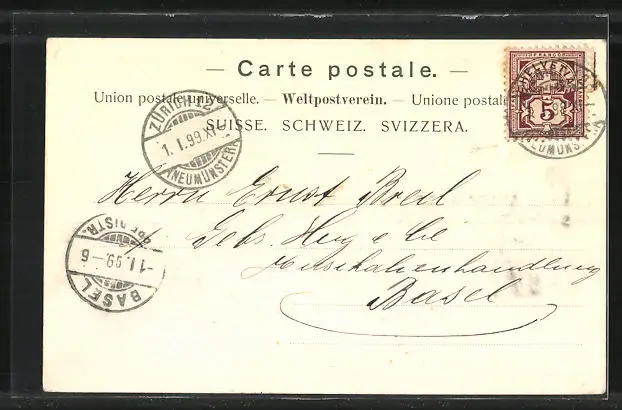 — Carte postale. —
Union postale universelle. — Weltpostverein. — Unione postale
SUISSE. SCHWEIZ. SVIZZERA.
FRANCO
HELVETIA
5
NEUMÜNS
ZÜRICH 12
1. I. 99. XI
(NEUMÜNSTER)
Herrn Ernst
Gebr. Hug & Cie
Musikalienhandlung
Basel
BRFDISTR.
-1. I. 99. - 6
BASEL